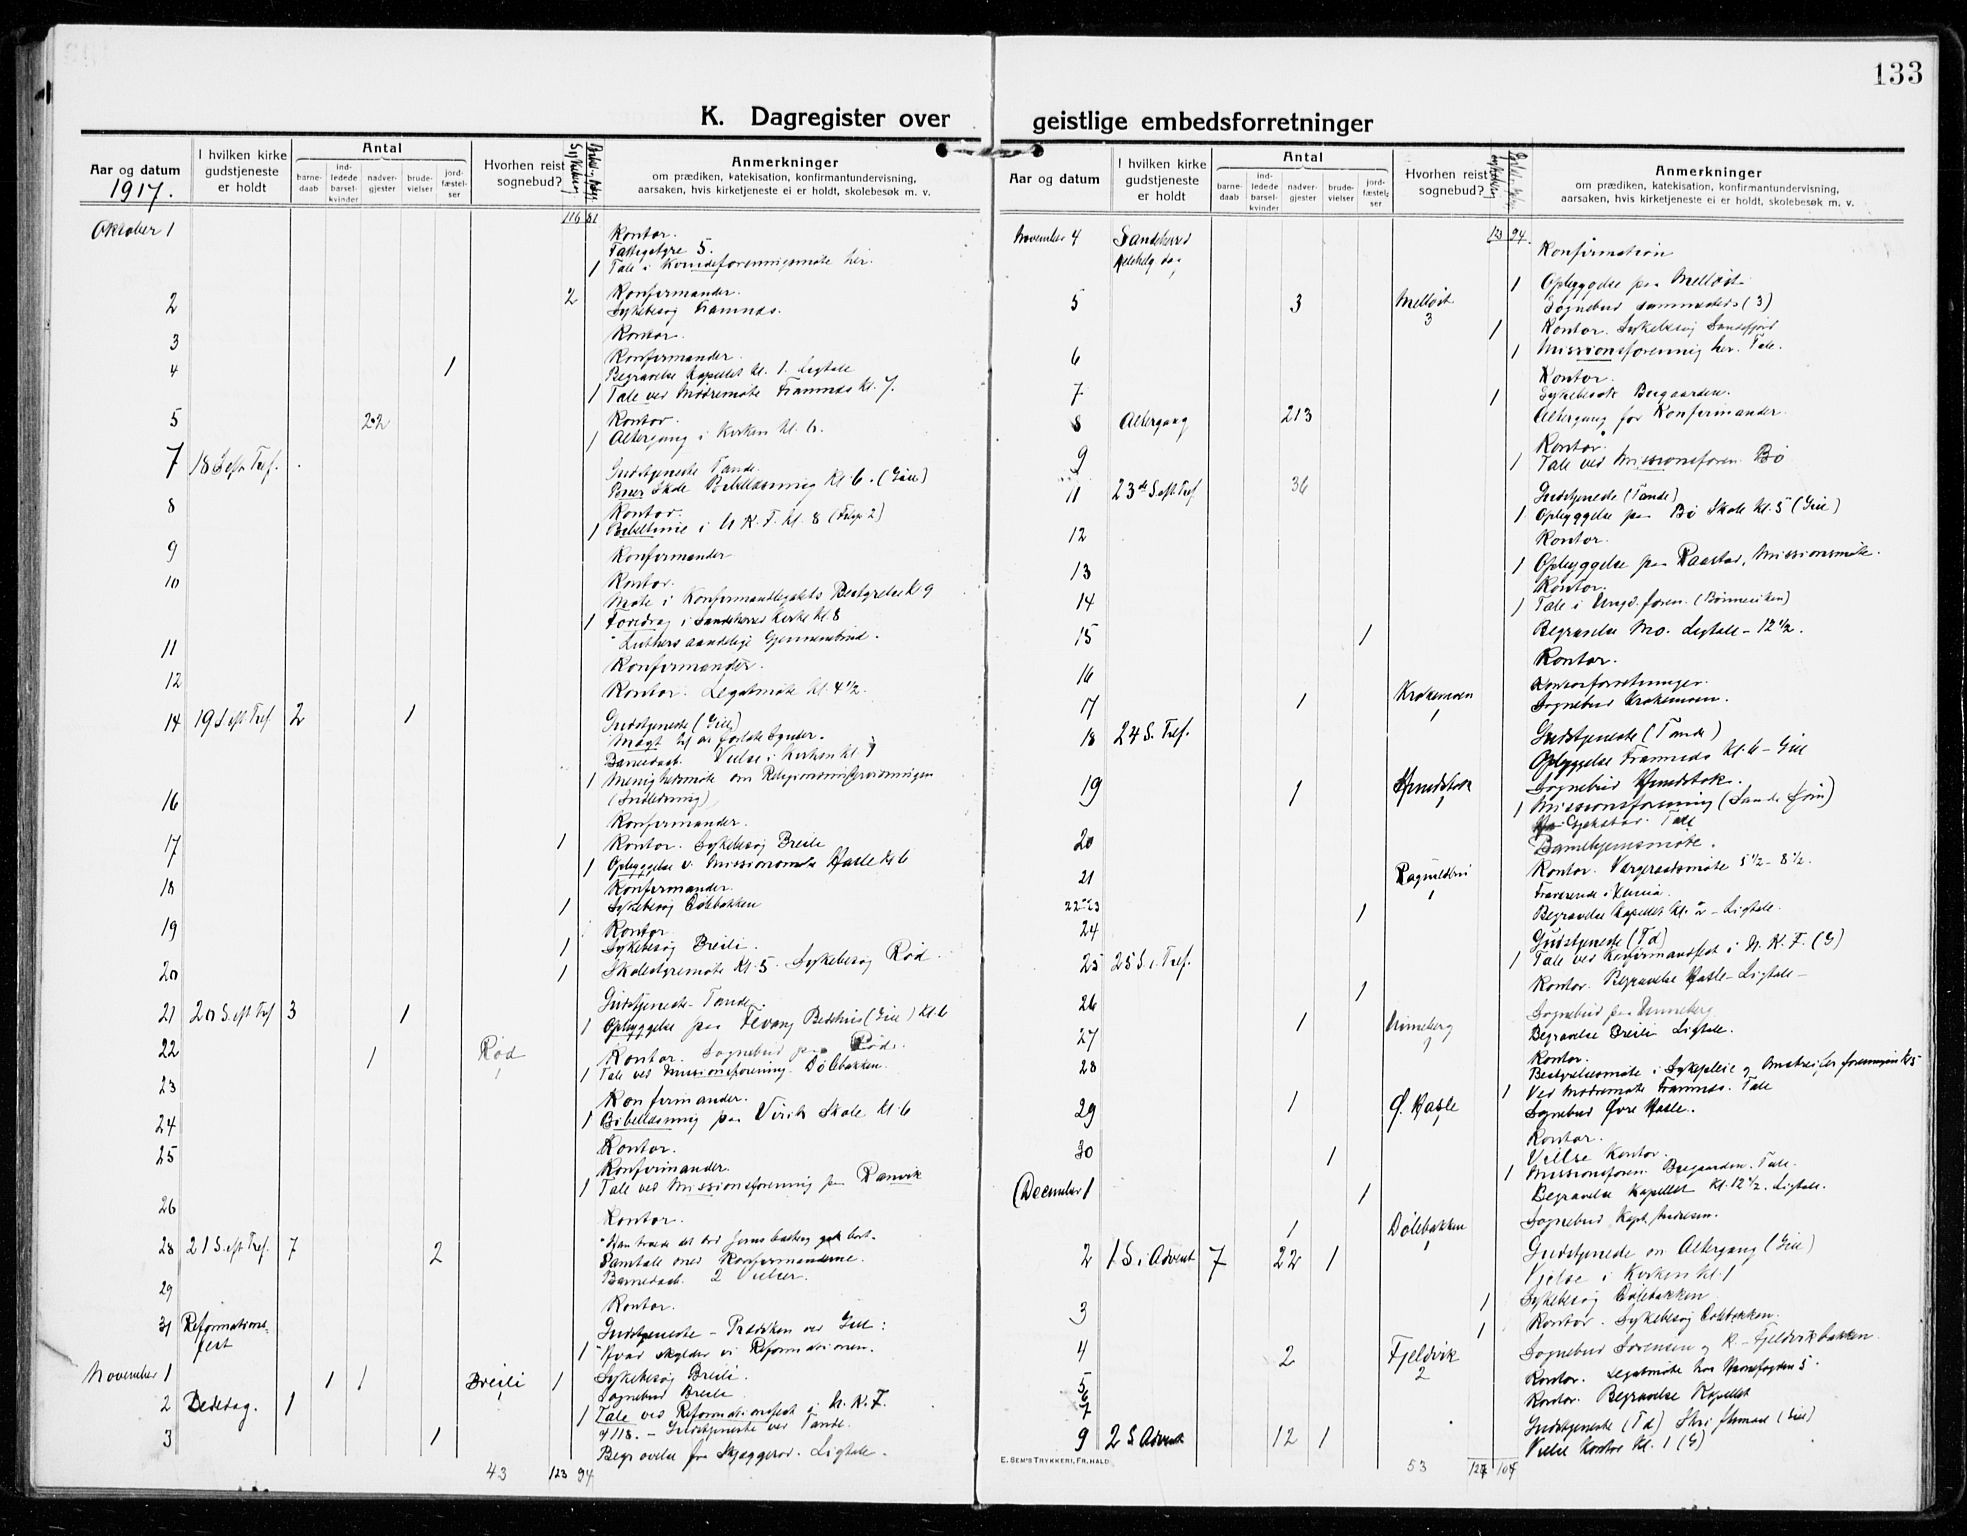 133
K. Dagregister over geistlige embedsforretninger
Aar og datum
1917.
I hvilken kirke gudstjeneste er holdt
Antal
barne-daab
ind-ledede barsel-kvinder
nadver-gjester
brude-vielser
jord-fæstel-ser
Hvorhen reist i sognebud?
Sykebesøg
Anmerkninger
om prædiken, katekisation, konfirmantundervisning,
aarsaken, hvis kirketjeneste ei er holdt, skolebesøk m. v.
116 81
Oktober 1 Kontor.
Fattigstyre 5.
1 Tale i Kvindeforeningsmøte her.
2 2 Konfirmander.
Sykebesøg Framnæs.
3 Kontor.
4 1 Konfirmander.
Begravelse Kapellet kl. 1. Ligtale
1 Tale ved Mødremøte Framnæs kl. 7.
5 22 Kontor.
1 Altergang i Kirken kl. 6.
7 18 S. eft. Tref. Gudstjeneste Tande.
Skole Bibellæsning kl. 6. (Gill)
8 Kontor.
1 Bibeltime i U. K. F. kl. 8
9 Konfirmander
10 Kontor.
Møte i Konfirmandlegatets Bestyrelse kl. 9
1 Foredrag i Sandeherred Kirke kl. 8
"Luthers aandelige Gjennembrud.
11 Konfirmander.
12 Kontor. Legatmøte kl. 4 1/2.
14 19 S. eft. Tref. 2 1 Gudstjeneste (Gill)
Magt til at forlate Synder.
Barnedaab. Vielse i Kirken kl.
1 Menighetsmøte om Religionsundervisningen
(Indledning)
16 Konfirmander.
17 1 Kontor. Sykebesøg Breili
1 Opbyggelse v. Missionsmøte Hasle kl. 6
18 Konfirmander.
1 Sykebesøg Dølebakken
19 Kontor
1 Sykebesøg Breili.
20 1 Skolestyremøte kl. 5. Sykebesøg Rød.
21 20 S. eft. Tref 3 1 Gudstjeneste - Tande.
1 Opbyggelse paa Fevang Bedehus (Gill) kl. 6
22 1 Rød 1 Kontor. Sognebud paa Rød.
1 Tale ved Missionsforening. Dølebakken.
23 Konfirmander.
24 1 Bibellæsning paa Virik Skole kl. 6
25 Kontor.
Konfirmander.
1 Tale ved Missionsforening paa Ranvik
26 Kontor.
28 21 S. eft Tref. 7 2 "Han troede det ord Jesus
Samtale med Konfirmanderne.
Barnedaab. 2 Vielser.
29 Kontor.
31 Reformations-
fest Gudstjeneste - Prædiken ved Gill:
1 "Hvad skylder vi Reformationen.
November 1 1 1 Breili 1 1 Sykebesøg Breili.
Sognebud Breili
2 Bededag. 1 1 Tale ved Reformationsfest i U. K. F.
Gudstjeneste ved Tande.
3 1 Begravelse fra Skjæggerød. Ligtale.
43 123 94
Aar og datum
I hvilken kirke gudstjeneste er holdt
Antal
barne-daab
ind-ledede barsel-kvinder
nadver-gjester
brude-vielser
jord-fæstel-ser
Hvorhen reist i sognebud?
Anmerkninger
om prædiken, katekisation, konfirmantundervisning,
aarsaken, hvis kirketjeneste ei er holdt, skolebesøk m. v.
123 94.
November 4 Sandeherred
Allehelg. dag Konfirmation
1 Opbyggelse paa Melløst
5 3 Melløst 3 Sognebud sammesteds (3)
1 Kontor. Sykebesøg Sandefjord
6 1 Missionsforening her. Tale.
7 Kontor.
1 Sykebesøk Bugaarden.
8 Altergang 213 Altergang for Konfirmander.
9 Kontor.
1 Tale ved Missionsforen. Bø
11 23de S. eft. Tref 36 Gudstjeneste (Tande)
1 Opbyggelse paa Bø Skole kl. 5 (Gill)
12 Kontor.
13 1 Opbyggelse paa Raastad, Missionsmøte.
14 Kontor.
1 Tale i Ungd. foren.
15 1 Begravelse Mo. Ligtale - 12 1/2.
16 Kontor.
17 1 Krokemoen 1 Kontorforretninger.
Sognebud Krokemoen.
18 24 S. Tref. Gudstjeneste (Tande)
Opbyggelse Framnæs kl. 6 - Gill
19 1 Hundstok 1 Sognebud Hundstok.
1 Missionsforening
Gjekstad. Tale
20 Barnehjemsmøte.
21 Ragnildsrø 1 Kontor. Vergeraadsmøte 5 1/2 - 8 1/2.
22 og 23 Fraværende i
24 1 Begravelse Kapellet kl. 2 - Ligtale.
25 25 S. e. Tref. Gudstjeneste (Td)
1 Tale ved Konfirmandfest i U. K. F. (G)
26 1 Kontor. Begravelse Hasle - Ligtale -
27 1 Unneberg 1 Sognebud paa Unneberg
Begravelse Breili Ligtale.
28 Kontor.
Bestyrelsesmøte i Sykepleie og
1 Ved Mødremøte Framnæs. Tale
29 1 Ø. Hasle 1 Sognebud Øvre Hasle.
30 1 Kontor.
Vielse Kontor.
1 Missionsforen. Bugaarden. Tale.
December 1 1 Begravelse Kapellet kl. 12 1/2. Ligtale.
1 Dølebakken 1 Sognebud Kapt. Andresen.
2 1 S. i Advent 7 22 1 Gudstjeneste og Altergang (Gill)
Vielse i Kirken kl. 1
1 Sykebesøg Dølebakken
3 1 Kontor. Sykebesøg Dølebakken.
4 2 Fjeldvik 2 Sognebud Sørensen og K - Fjeldvikbakken
5 Kontor. Legatmøte hos Havnefogden 5.
6 Kontor. Begravelse Kapellet
7
9 2 S. Advent 12 1 Gudstjeneste (Td)
Vielse Kontor kl. 1 (G)
E. SEM'S TRYKKERI, FR.HALD
53 104